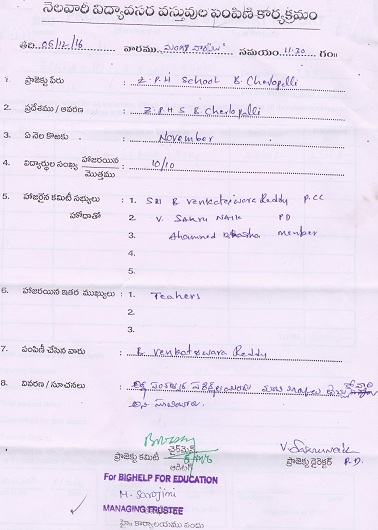 నెలవారీ విద్యావసర వస్తువుల పంపిణి కార్యక్రమం
తేది 06/12/16 వారము మంగళవారము సమయం 11:30 గం॥
1. ప్రాజెక్టు పేరు : Z.P.H School B. Cherlopalli
2. ప్రదేశము / ఆవరణ : Z.P.H.S B Cherlopalli
3. ఏ నెల కొఱకు : November
4. విద్యార్థుల సంఖ్య హాజరయిన / మొత్తము : 10/10
5. హాజరైన కమిటీ సభ్యులు : 1. SRI B Venkateswara Reddy P.CC
హోదాతో 2. V. SAKRU NAIK PD
3. Ahammed Bhasha member
4.
5.
6. హాజరయిన ఇతర ముఖ్యులు : 1. Teahers
2.
3.
7. పంపిణీ చేసిన వారు : B Venkateswara Reddy
8. వివరణ / సూచనలు :
చైర్మైన్
ప్రాజెక్టు కమిటీ
ఆడిటర్
V. Sakrunaik
ప్రాజెక్టు డైరెక్టర్ P.D.
For BIGHELP FOR EDUCATION
M. Sarojini
MANAGING TRUSTEE